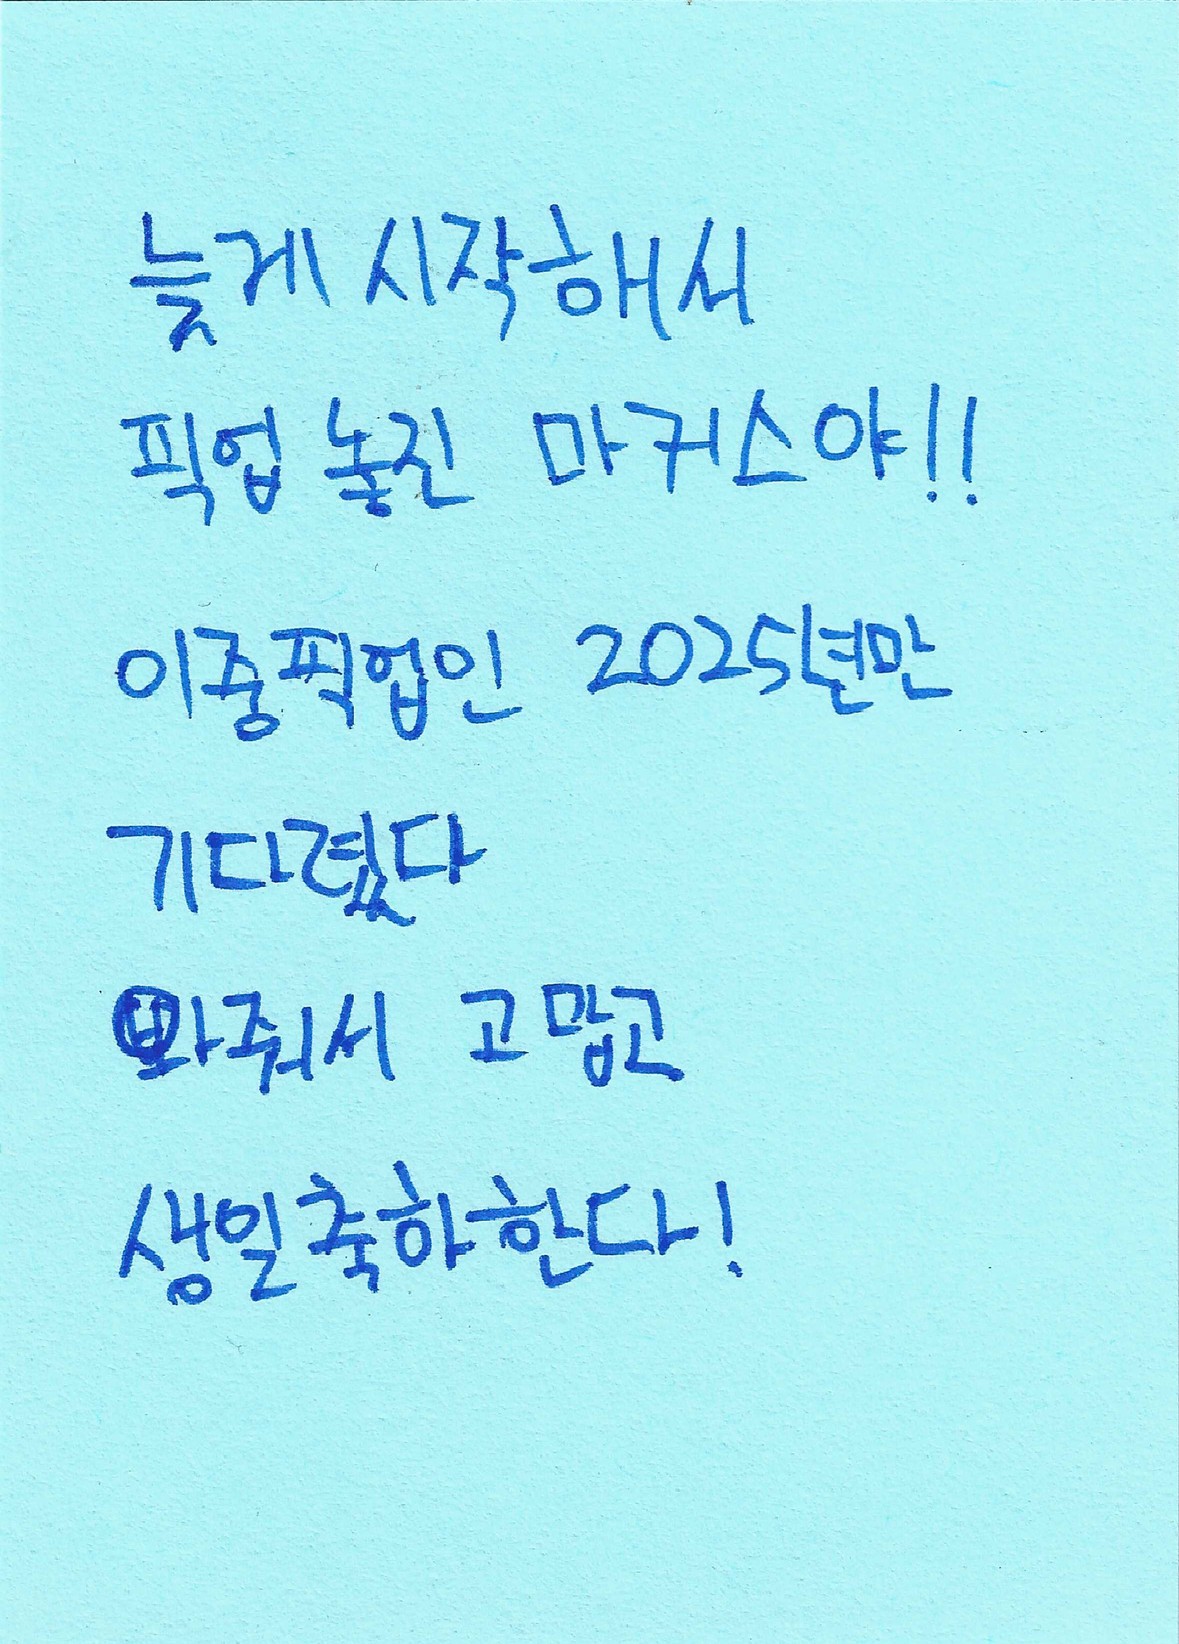 늦게 시작해서
픽업 놓진 마커스야!!
이중픽업인 2025년만
기다렸다
와줘서 고맙고
생일축하한다!